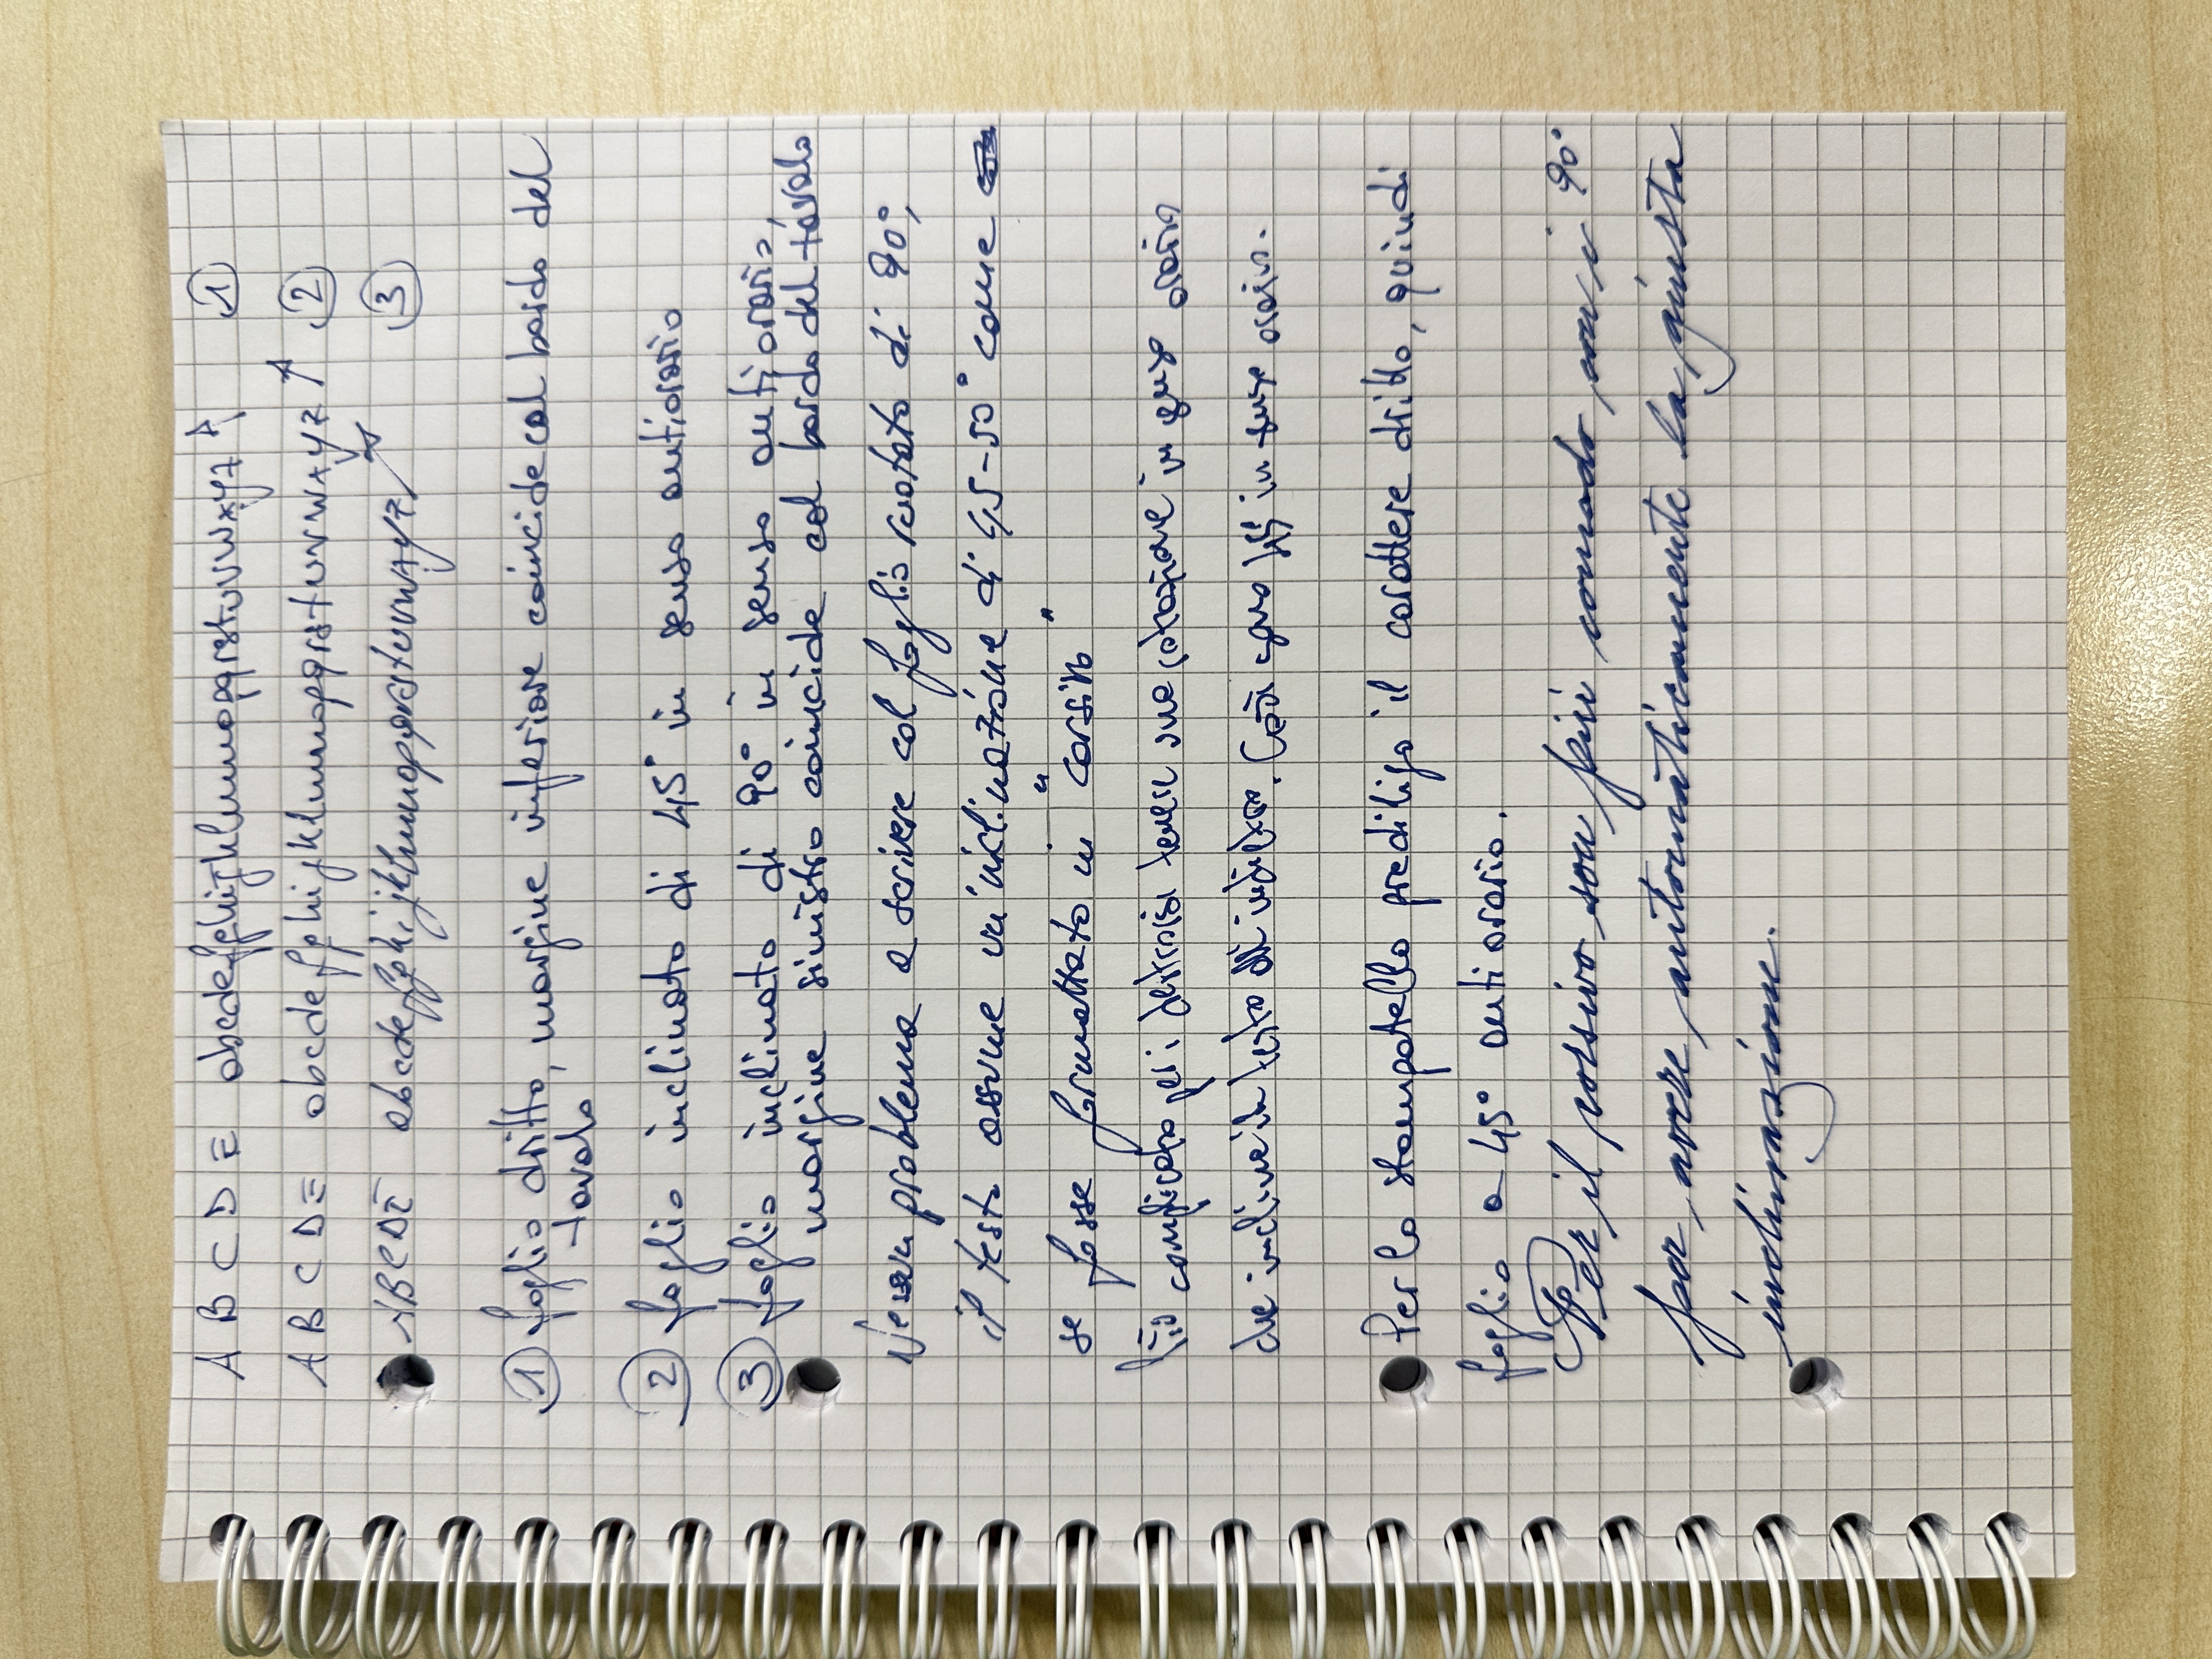 A B C D E abcdefghijklmnopqrstuvwxyz ①
A B C D E abcdefghijklmnopqrstuvwxyz ②
ABCDE abcdefghijklmnopqrstuvwxyz ③
① foglio dritto, margine inferiore coincide col bordo del
tavolo
② foglio inclinato di 45° in senso antiorario
③ foglio inclinato di 90° in senso antiorario,
margine sinistro coincide col bordo del tavolo
Nessun problema a scrivere col foglio ruotato di 90°,
il testo assume un'inclinazione di 45-50° come
se fosse formattato in "corsivo"
Più complicato per i destrorsi tenere una rotazione in senso orario
che inclinerà il testo all'indietro. Così sono 45° in senso orario.
Per lo stampatello prediligo il carattere dritto, quindi
foglio a 45° antiorario.
Per il corsivo sono più comodo con i 90°
per avere automaticamente la giusta
inclinazione.